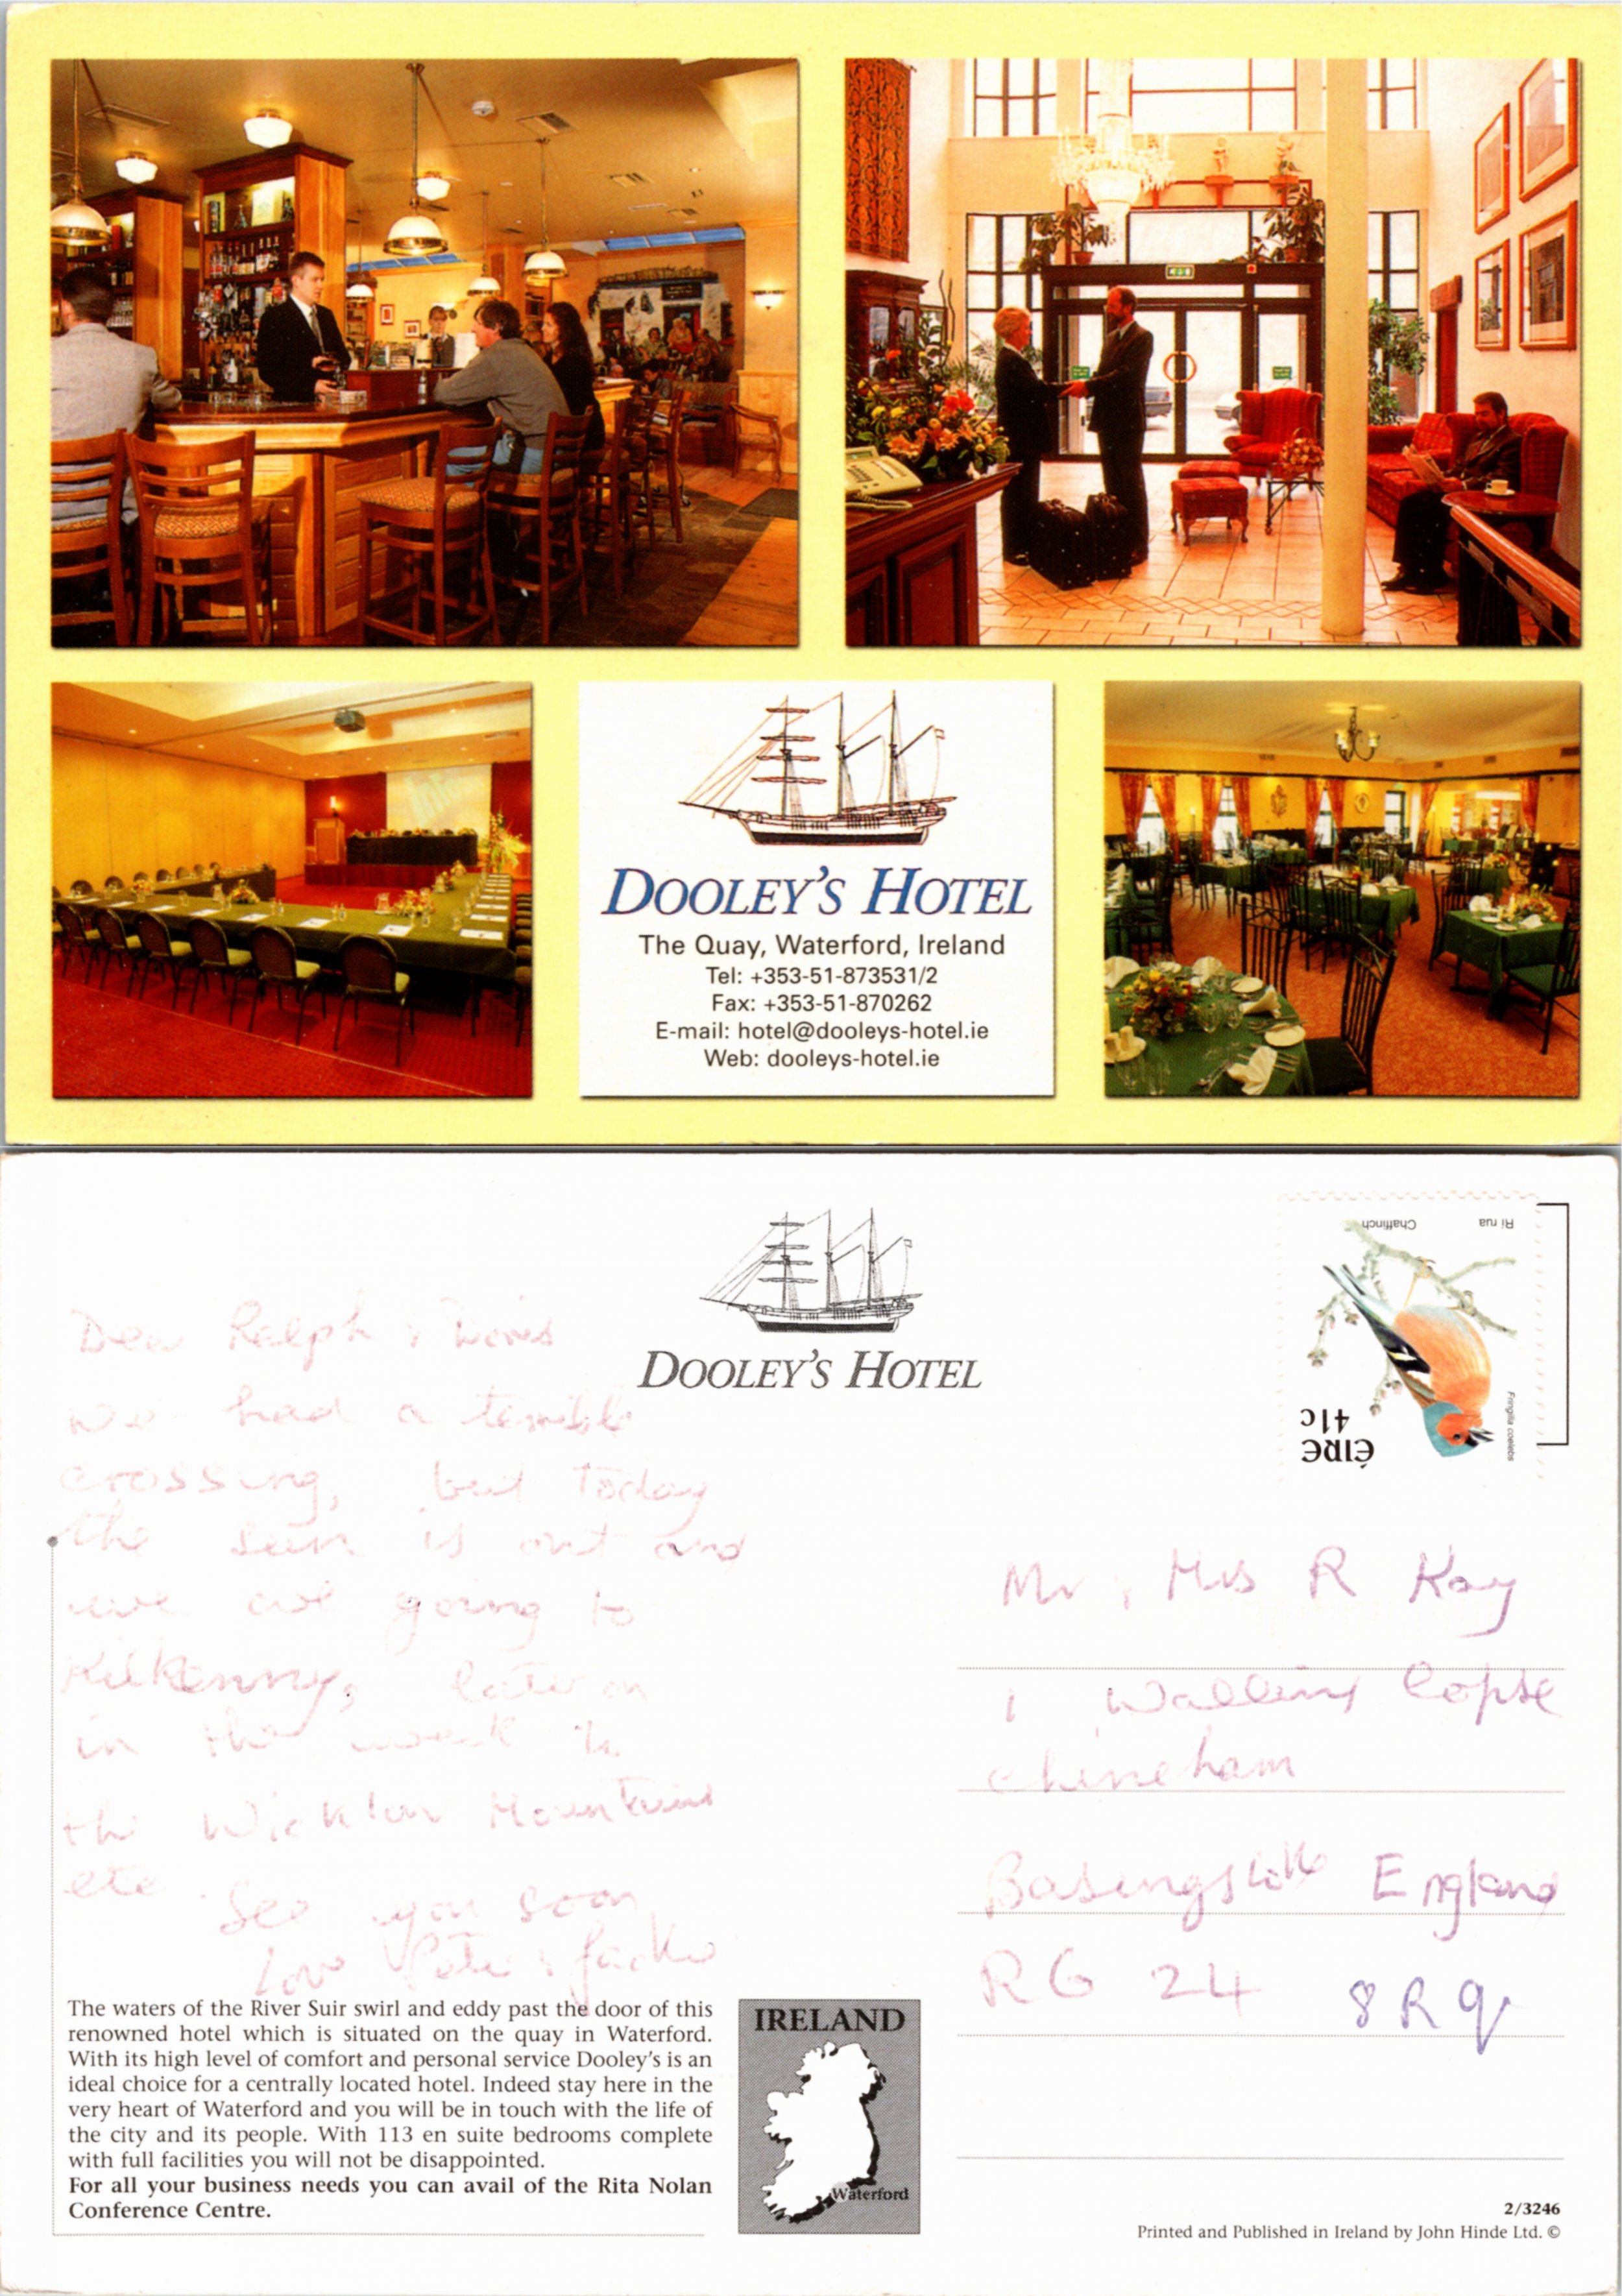 DOOLEY'S HOTEL
The Quay, Waterford, Ireland
Tel: +353-51-873531/2
Fax: +353-51-870262
E-mail: hotel@dooleys-hotel.ie
Web: dooleys-hotel.ie
DOOLEY'S HOTEL
Ri rua
Chaffinch
Fringilla coelebs
41c
éire
Dear Ralph &
We had a terrible
crossing, but today
the sun is out and
we are going to
Kilkenny, later on
in the week to
the Wicklow Mountains
etc. See you soon
Love Pete & Jackie
Mr & Mrs R Kay
1 Copse
Chineham
Basingstoke England
RG 24 8RQ
The waters of the River Suir swirl and eddy past the door of this
renowned hotel which is situated on the quay in Waterford.
With its high level of comfort and personal service Dooley's is an
ideal choice for a centrally located hotel. Indeed stay here in the
very heart of Waterford and you will be in touch with the life of
the city and its people. With 113 en suite bedrooms complete
with full facilities you will not be disappointed.
For all your business needs you can avail of the Rita Nolan
Conference Centre.
IRELAND
Waterford
2/3246
Printed and Published in Ireland by John Hinde Ltd. ©